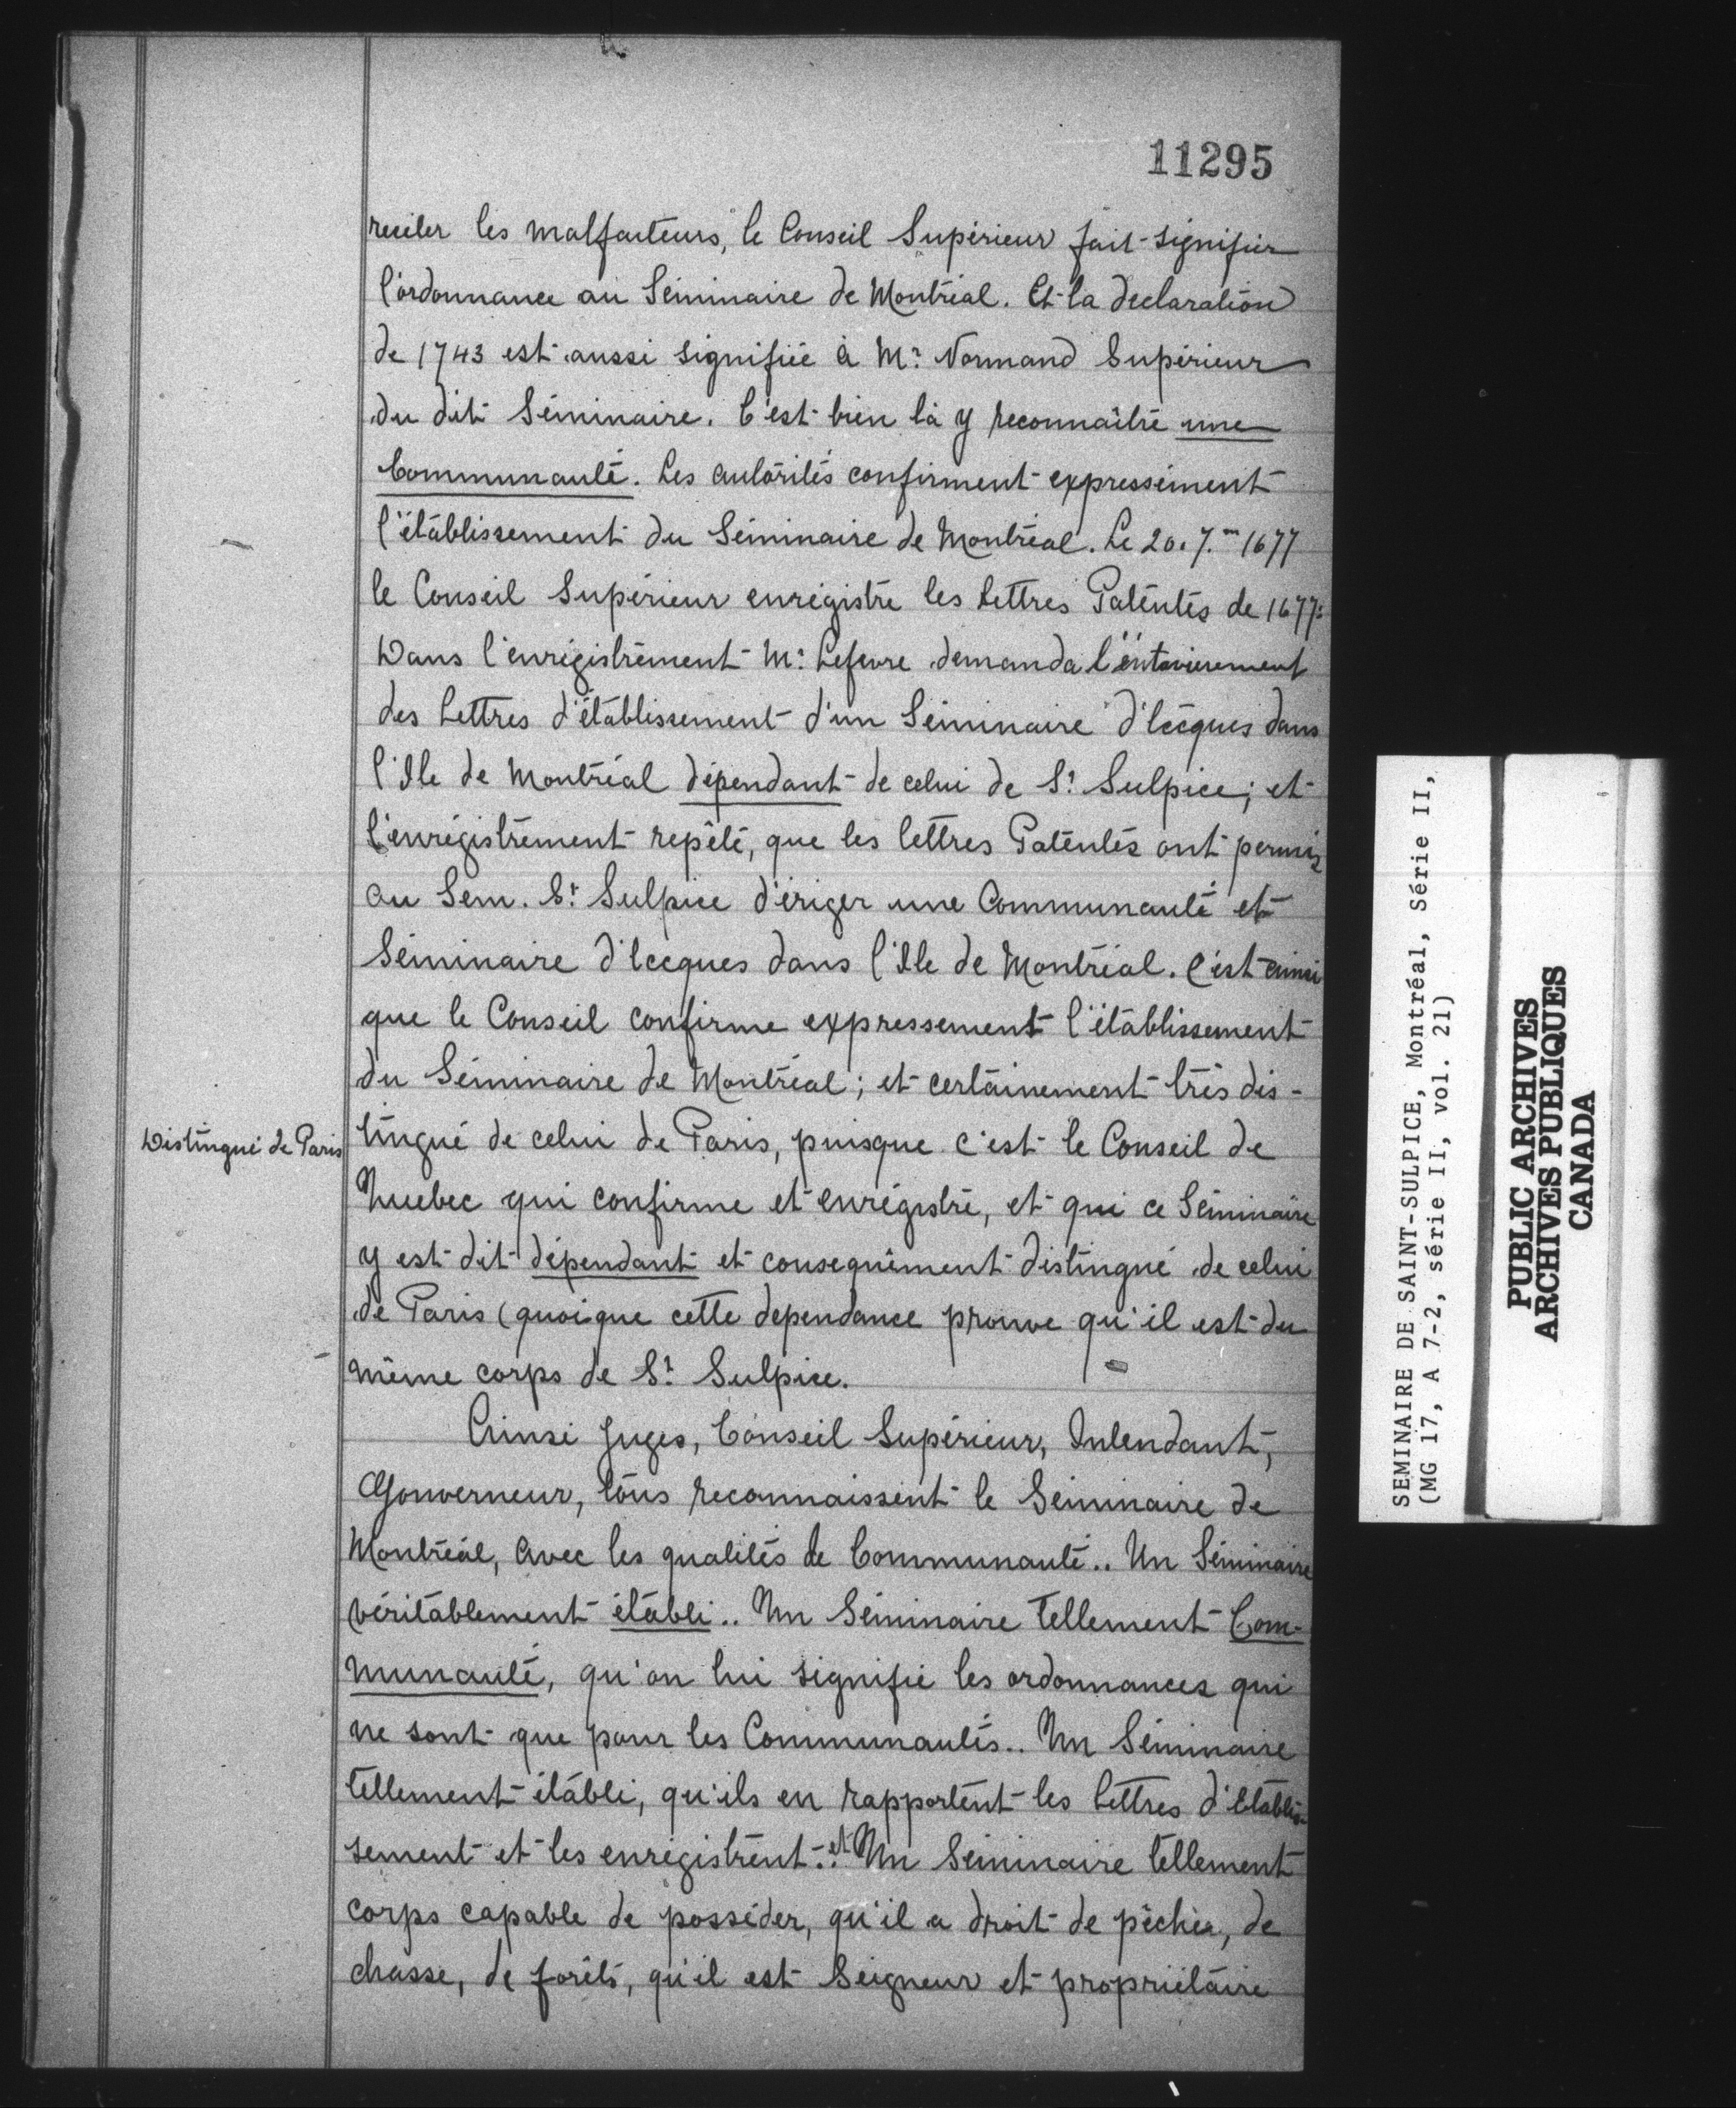 11295
receler les malfaiteurs, le Conseil Supérieur fait signifier
l'ordonnance au Séminaire de Montréal. Et la declaration
de 1743 est aussi signifiée à Mr. Normand Supérieur
du dit Séminaire. C'est bien là y reconnaître une
Communauté. Les autorités confirment expressément
l'établissement du Séminaire de Montréal. Le 20. 7.m 1677
le Conseil Supérieur enrégistre les Lettres Patentes de 1677:
Dans l'enrégistrement Mr. Lefevre demanda l'entérinement
des Lettres d'établissement d'un Séminaire d'Eccques dans
l'Ile de Montréal dépendant de celui de St. Sulpice; et
l'enrégistrement repête, que les lettres Patentes ont permis
au Sem. St. Sulpice d'ériger une Communauté et
Séminaire d'Eccques dans l'Ile de Montréal. C'est ainsi
que le Conseil confirme expressement l'établissement
du Séminaire de Montréal; et certainement très dis-
Distingué de Paris
tingué de celui de Paris, puisque c'est le Conseil de
Quebec qui confirme et enrégistre, et que ce Séminaire
y est dit dépendant et consequêment distingué de celui
de Paris (quoique cette dependance prouve qu'il est du
même corps de St. Sulpice.
Ainsi Juges, Conseil Supérieur, Intendant,
Gouverneur, tous reconnaissent le Séminaire de
Montréal, avec les qualités de Communauté.. Un Séminaire
véritablement établi.. Un Séminaire tellement Com-
munauté, qu'on lui signifie les ordonnances qui
ne sont que pour les Communautés.. Un Séminaire
tellement établi, qu'ils en rapportent les Lettres d'Etablis-
sement et les enregistrent.. et Un Séminaire tellement
corps capable de posséder, qu'il a droit de pêche, de
chasse, de forêts, qu'il est Seigneur et propriétaire
SEMINAIRE DE SAINT-SULPICE, Montréal, Série II,
(MG 17, A 7-2, série II, vol. 21)
PUBLIC ARCHIVES
ARCHIVES PUBLIQUES
CANADA